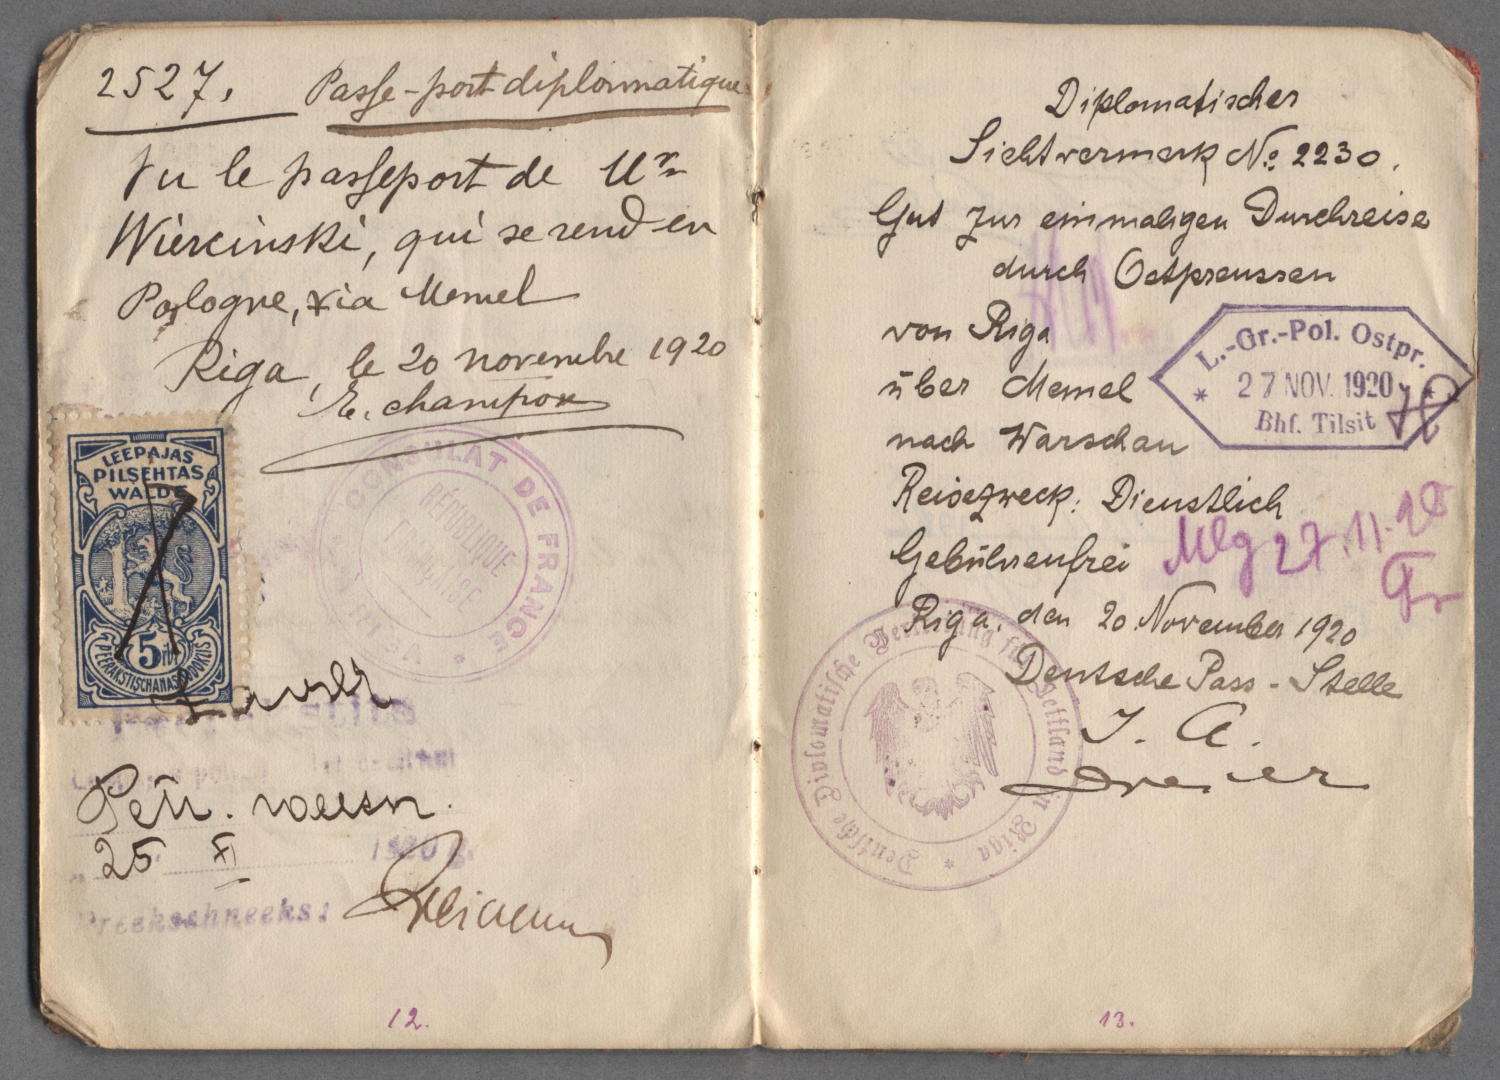 2527. Passe-port diplomatique
Vu le passeport de Mr
Wiercinski, qui se rend en
Pologne, via Memel
Riga, le 20 novembre 1920
CONSULAT DE FRANCE
RÉPUBLIQUE
FRANÇAISE
LEEPAJAS
PILSEHTAS
WALDE
5
Preekschneeks:
25 XI 1920 g.
12.
Diplomatischer
Sichtvermerk No. 2230.
Gut zur einmaligen Durchreise
durch Ostpreussen
von Riga
über Memel
nach Warschau
Reisezweck: Dienstlich
Gebührenfrei
Riga, den 20. November 1920
Deutsche Pass-Stelle
I. A.
L.-Gr.-Pol. Ostpr.
* 27 NOV. 1920 *
Bhf. Tilsit
Mlg 27.11.20
Deutsche Diplomatische Vertretung für Lettland in Riga *
13.